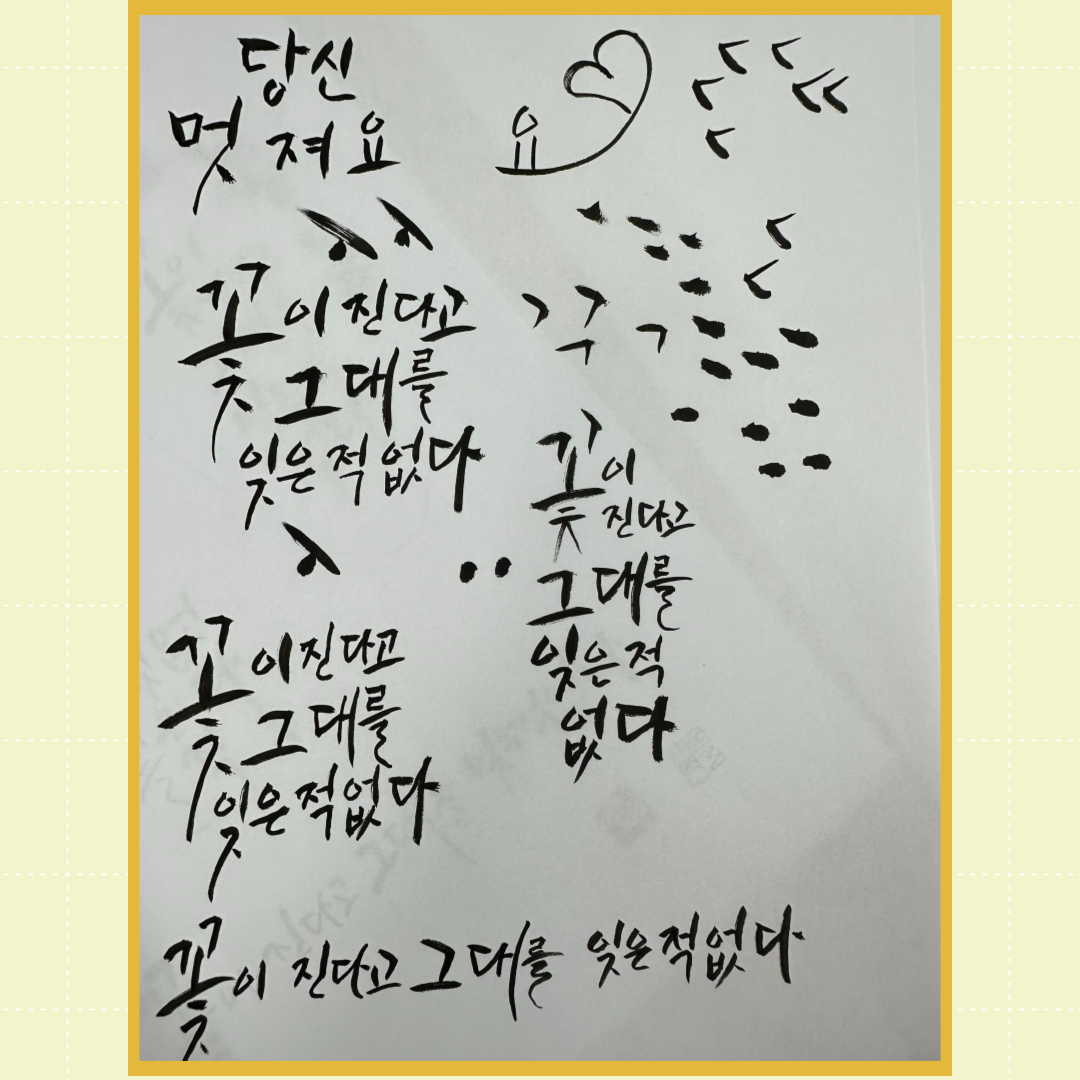 당신
멋져요
요
꽃이 진다고
그대를
잊은 적 없다
꽃이
진다고
그대를
잊은 적
없다
꽃이 진다고
그대를
잊은 적 없다
꽃이 진다고 그대를 잊은 적 없다